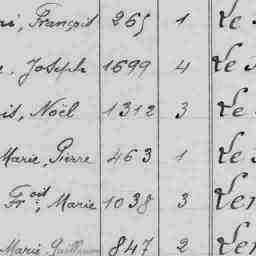 François 265 1 Le
Joseph 1699 4 Le
Noël 1312 3 Le
Marie, Pierre 463 1 Le
Fr.çois, Marie 1038 3 Le
Marie Guillaume 847 2 Le